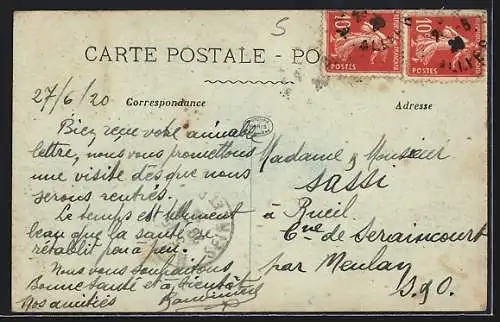 5
CARTE POSTALE - PO
10c POSTES
10c POSTES
27/6/20
Correspondance
Adresse
Bien reçu votre aimable
lettre, nous vous promettons
une visite dès que nous
serons rentrés.
Le temps est tellement
beau que la santé se
rétablit peu à peu.
Nous vous souhaitons
Bonne Santé et à bientôt
Nos amitiés
Madame & Monsieur
Sassi
à Rueil
Cne de Seraincourt
par Meulan
S. & O.